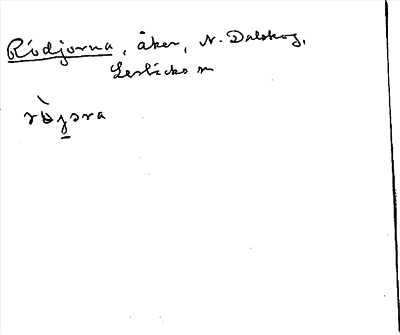 Rödjorna, åker, N. Dalskog,
Lerbäcks sn
rò̀jɔra